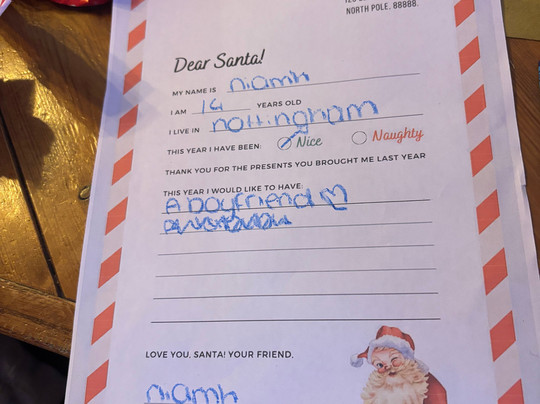 NORTH POLE, 88888.
Dear Santa!
MY NAME IS niamh
I AM 14 YEARS OLD
I LIVE IN nottingham
THIS YEAR I HAVE BEEN: Nice Naughty
THANK YOU FOR THE PRESENTS YOU BROUGHT ME LAST YEAR
THIS YEAR I WOULD LIKE TO HAVE:
A boyfriend
LOVE YOU, SANTA! YOUR FRIEND,
niamh